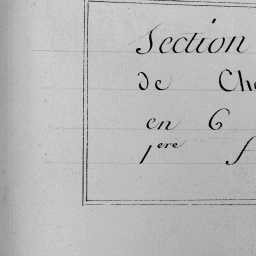 Section
de Cha
en 6
1ere f